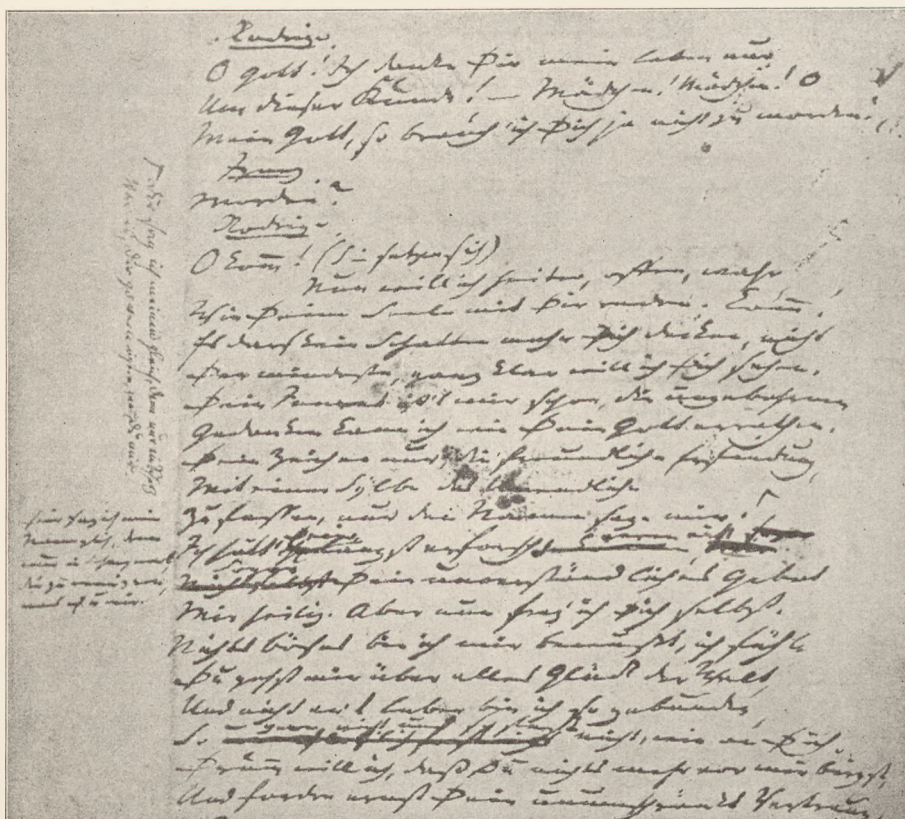 Rodrigo.
O Gott! Ich danke Dir mein Leben nur
Um dieser Kunde! — Mädchen! Mädchen! O
Mein Gott, so brauch' ich Dich ja nicht zu morden!
Franz
Morden?
Rodrigo.
O komm! (Sie setzen sich)
Nun will ich heiter, offen, wahr,
Wie Deine Seele mit Dir reden. Komm!
Es darf kein Schatten mehr Dich decken, nicht
Der mindeste, ganz klar will ich Dich sehen.
Dein Innres ist's mir schon, die ungebohrnen
Gedanken kann ich wie Dein Gott errathen.
Dein Zeichen nur, die freundliche Erfindung
Mit einer Sylbe das Unendliche
Zu fassen, nur den Namen sage mir.
Dir sag ich meinen gleich, denn nur ein Scherz
War es, Dir zu verweigern, was Du mir.
Ich hätte längst erforscht
Dein unverständliches Gebot
Mir heilig. Aber nun frag' ich Dich selbst.
Nichts böses bin ich mir bewußt, ich fühle
Du gehst mir über alles Glück der Welt,
Und nicht an's Leben bin ich so gebunden,
So nicht, wie an Dich.
Drum will ich, daß Du nichts mehr vor mir birgst,
Und fordre ernst Dein unumschränkt Vertrauen.